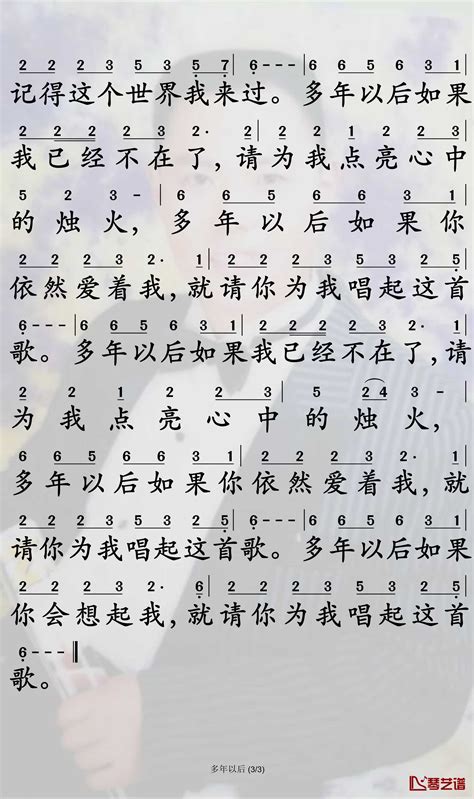 2 2 2 3 5 3 2 5 7 | 6 - - - | 6 6 5 6 3 1 |
记得这个世界我来过。多年以后如果
2 2 2 2 3 2· 2 | 2 2 1 2 2 3 |
我已经不在了,请为我点亮心中
5 2 3 - | 6 6 5 6 6 3 1 |
的烛火,多年以后如果你
2 2 2 3 2· 1 | 6 2 2 3 5 3 2 5 |
依然爱着我,就请你为我唱起这首
6 - - - | 6 6 5 6 3 1 | 2 2 2 2 3 2· 2 |
歌。多年以后如果我已经不在了,请
2 2 1 2 2 3 | 5 2 4 3 - |
为我点亮心中的烛火,
6 6 5 6 6 3 1 | 2 2 2 3 2· 1 |
多年以后如果你依然爱着我,就
6 2 2 3 5 3 2 5 | 6 - - - | 6 6 5 6 3 1 |
请你为我唱起这首歌。多年以后如果
2 2 2 3 2· 6 | 2 2 2 3 5 3 2 5 |
你会想起我,就请你为我唱起这首
6 - - - ‖
歌。
多年以后 (3/3)
琴艺谱